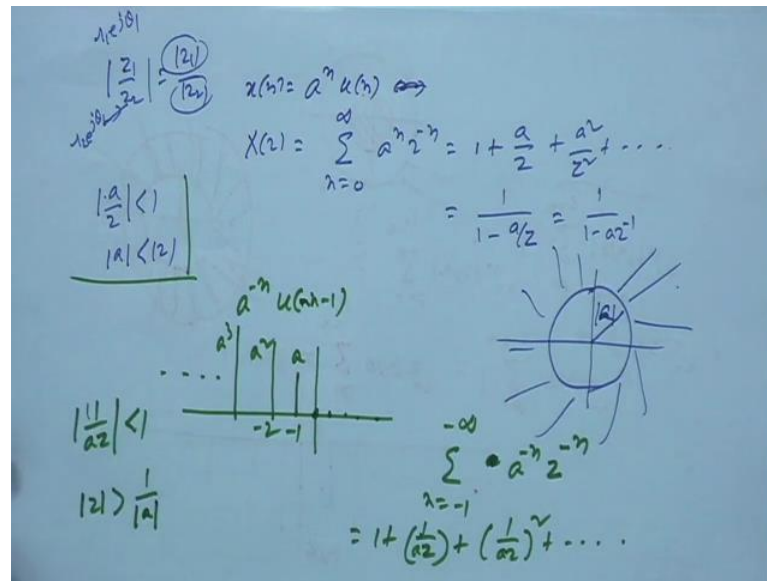 r₁e^{jθ₁}
|z₁/z₂| = |z₁|/|z₂|
r₂e^{jθ₂}
x(n) = aⁿ u(n) ⇔
X(z) = ∞ Σ n=0 aⁿ z⁻ⁿ = 1 + a/z + a²/z² + ....
= 1/(1 - a/z) = 1/(1 - az⁻¹)
|a/z| < 1
|a| < |z|
|a|
a⁻ⁿ u(-n-1)
a³ a² a
....
-2 -1
|1/az| < 1
|z| > 1/|a|
-∞ Σ n=-1 a⁻ⁿ z⁻ⁿ
= 1 + (1/az) + (1/az)² + ....